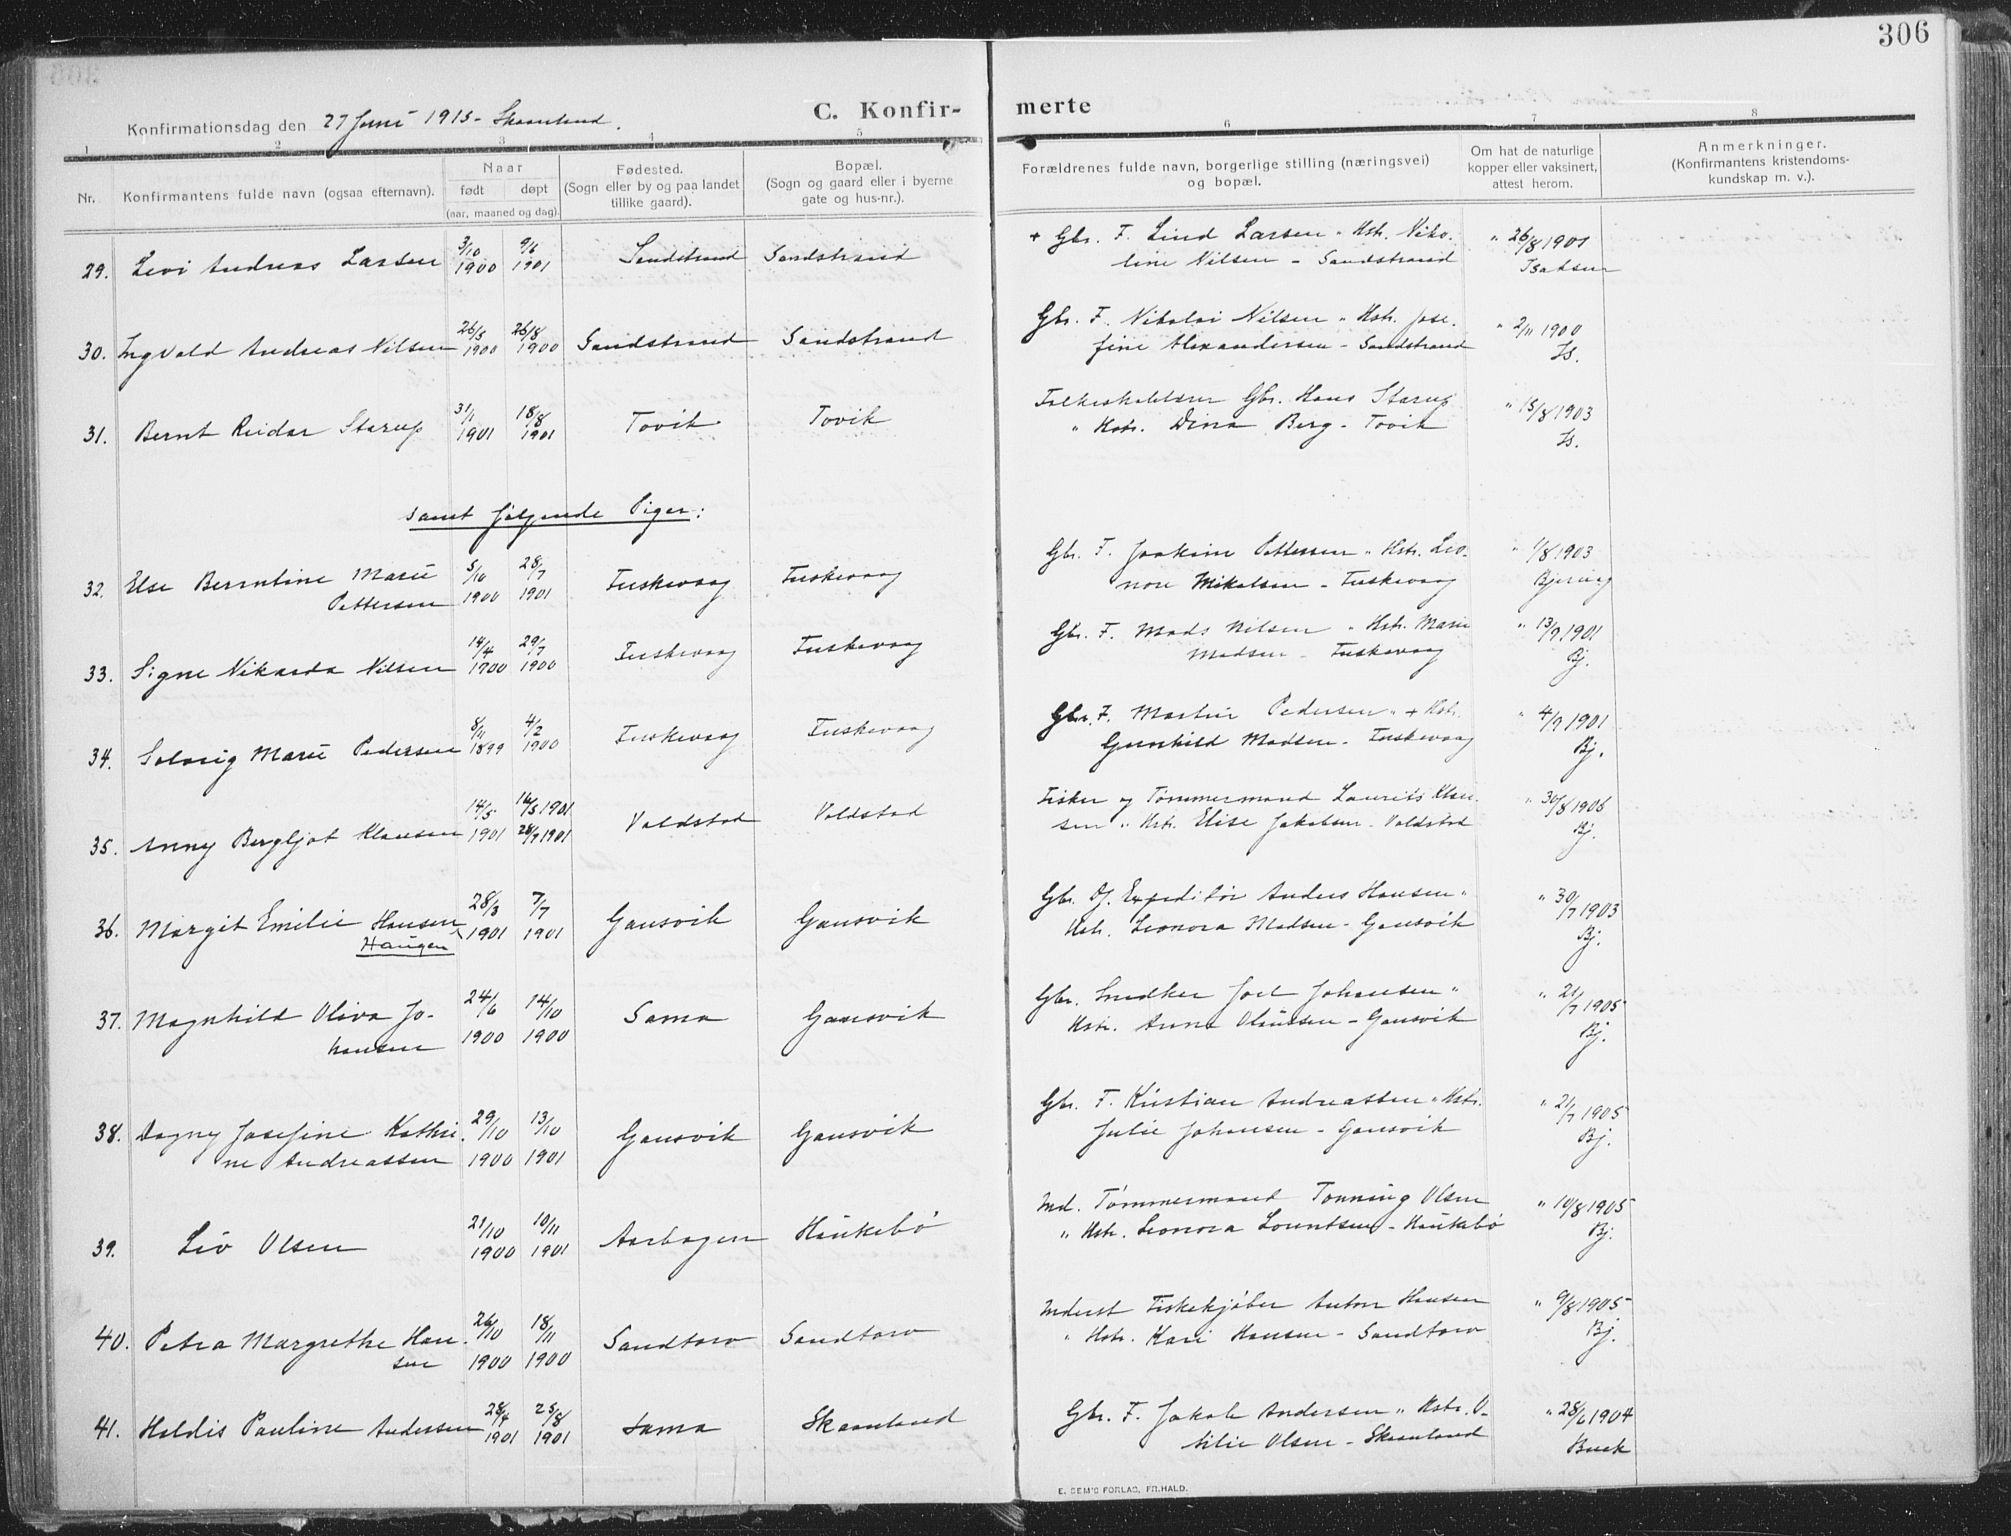 306
Konfirmationsdag den 27 Juni 1915 - Skaanland.
C. Konfir-
merte
1 2 3 4 5 6 7 8
Nr.
Konfirmantens fulde navn (ogsaa efternavn).
Naar
født døpt
(aar, maaned og dag).
Fødested.
(Sogn eller by og paa landet
tillike gaard).
Bopæl.
(Sogn og gaard eller i byerne
gate og hus-nr.).
Forældrenes fulde navn, borgerlige stilling (næringsvei)
og bopæl.
Om hat de naturlige
kopper eller vaksinert,
attest herom.
Anmerkninger.
(Konfirmantens kristendoms-
kundskap m. v.).
29. Levi Andreas Larsen 3/10 1900 9/6 1901 Sandstrand Sandstrand
+ Gbr. F. Lind Larsen " Hstr. Niko-
line Nilsen - Sandstrand
" 26/8 1901
Isaksen
30. Ingvald Andreas Nilsen 26/5 1900 26/8 1900 Sandstrand Sandstrand
Gbr. F. Nikolai Nilsen " Hstr. Jose-
fine Alexandersen - Sandstrand
" 2/11 1900
Is.
31. Bernt Reidar Starup 31/1 1901 18/8 1901 Tovik Tovik
Folkeskolelærer Gbr. Hans Starup
" Hstr. Dina Berg - Tovik
" 15/8 1903
Is.
samt følgende Piger:
32. Else Berntine Marie
Pettersen 5/10 1900 28/7 1901 Fuskevaag Fuskevaag
Gbr. F. Joakim Pettersen " Hstr. Leo-
nore Mikalsen - Fuskevaag
" 1/8 1903
33. Signe Nikarda Nilsen 14/4 1900 29/7 1900 Fuskevaag Fuskevaag
Gbr. F. Mads Nilsen " Hstr. Marie
Madsen - Fuskevaag
" 13/9 1901
Bj.
34. Solveig Marie Pedersen 8/11 1899 4/2 1900 Fuskevaag Fuskevaag
Gbr. F. Martin Pedersen " + Hstr.
Gunhild Madsen - Fuskevaag
" 4/9 1901
Bj.
35. Anny Bergljot Klausen 14/5 1901 16/5 1901 28/7 1901 Voldstad Voldstad
Fisker og Tømmermand Laurits Klau-
sen " Hstr. Elise Jakobsen - Voldstad
" 30/8 1906
Bj.
36. Margit Emilie Hansen
Haugen 28/3 1901 7/7 1901 Gausvik Gausvik
Gbr. Dj. Expeditør Anders Hansen "
Hstr. Leonora Madsen - Gausvik
" 30/7 1903
Bj.
37. Magnhild Oliva Jo-
hansen 24/6 1900 14/10 1900 Sama Gausvik
Gbr. Snedker Joel Johansen "
Hstr. Anna Olaussen - Gausvik
" 21/7 1905
Bj.
38. Dagny Josefine Kathri-
ne Andreassen 29/10 1900 13/10 1901 Gausvik Gausvik
Gbr. F. Kristian Andreassen " Hstr.
Julie Johansen - Gausvik
" 21/7 1905
Bj.
39. Liv Olsen 21/10 1900 10/11 1901 Aarbogen Haukebø
Md. Tømmermand Tonning Olsen
" Hstr. Leonora Lorentsen - Haukebø
" 10/8 1905
Bj.
40. Petra Margrethe Han-
sen 26/10 1900 18/11 1900 Sandtorv Sandtorv
Inderst Fiskekjøber Anton Hansen
" Hstr. Kari Hansen - Sandtorv
" 9/8 1905
Bj.
41. Haldis Pauline Andersen 28/4 1901 25/8 1901 Sama Skaanland
Gbr. F. Jakob Andersen " Hstr. O-
tilie Olsen - Skaanland
" 28/6 1904
Buck
E. SEM'S FORLAG, FR.HALD.